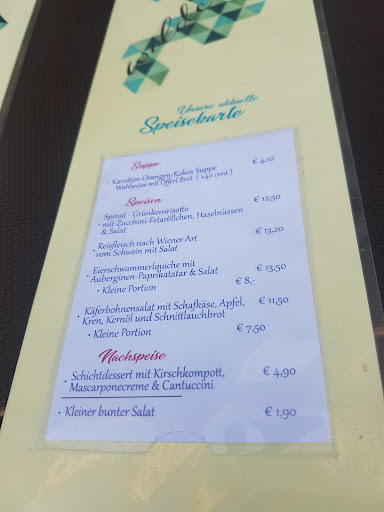 Unsere aktuelle
Speisekarte
Suppe
· Karotten-Orangen-Kokos Suppe € 4,10
Wahlweise mit Öfferl Brot ( +40 cent )
Speisen
Spinat - Grünkernrisotto € 12,50
· mit Zucchini-Fetaröllchen, Haselnüssen
& Salat
· Reisfleisch nach Wiener Art € 13,20
vom Schwein mit Salat
· Eierschwammerlquiche mit € 13,50
Auberginen-Paprikatatar & Salat
· Kleine Portion € 8,-
· Käferbohnensalat mit Schafkäse, Apfel, € 11,50
Kren, Kernöl und Schnittlauchbrot
· Kleine Portion € 7,50
Nachspeise
· Schichtdessert mit Kirschkompott, € 4,90
Mascarponecreme & Cantuccini
· Kleiner bunter Salat € 1,90